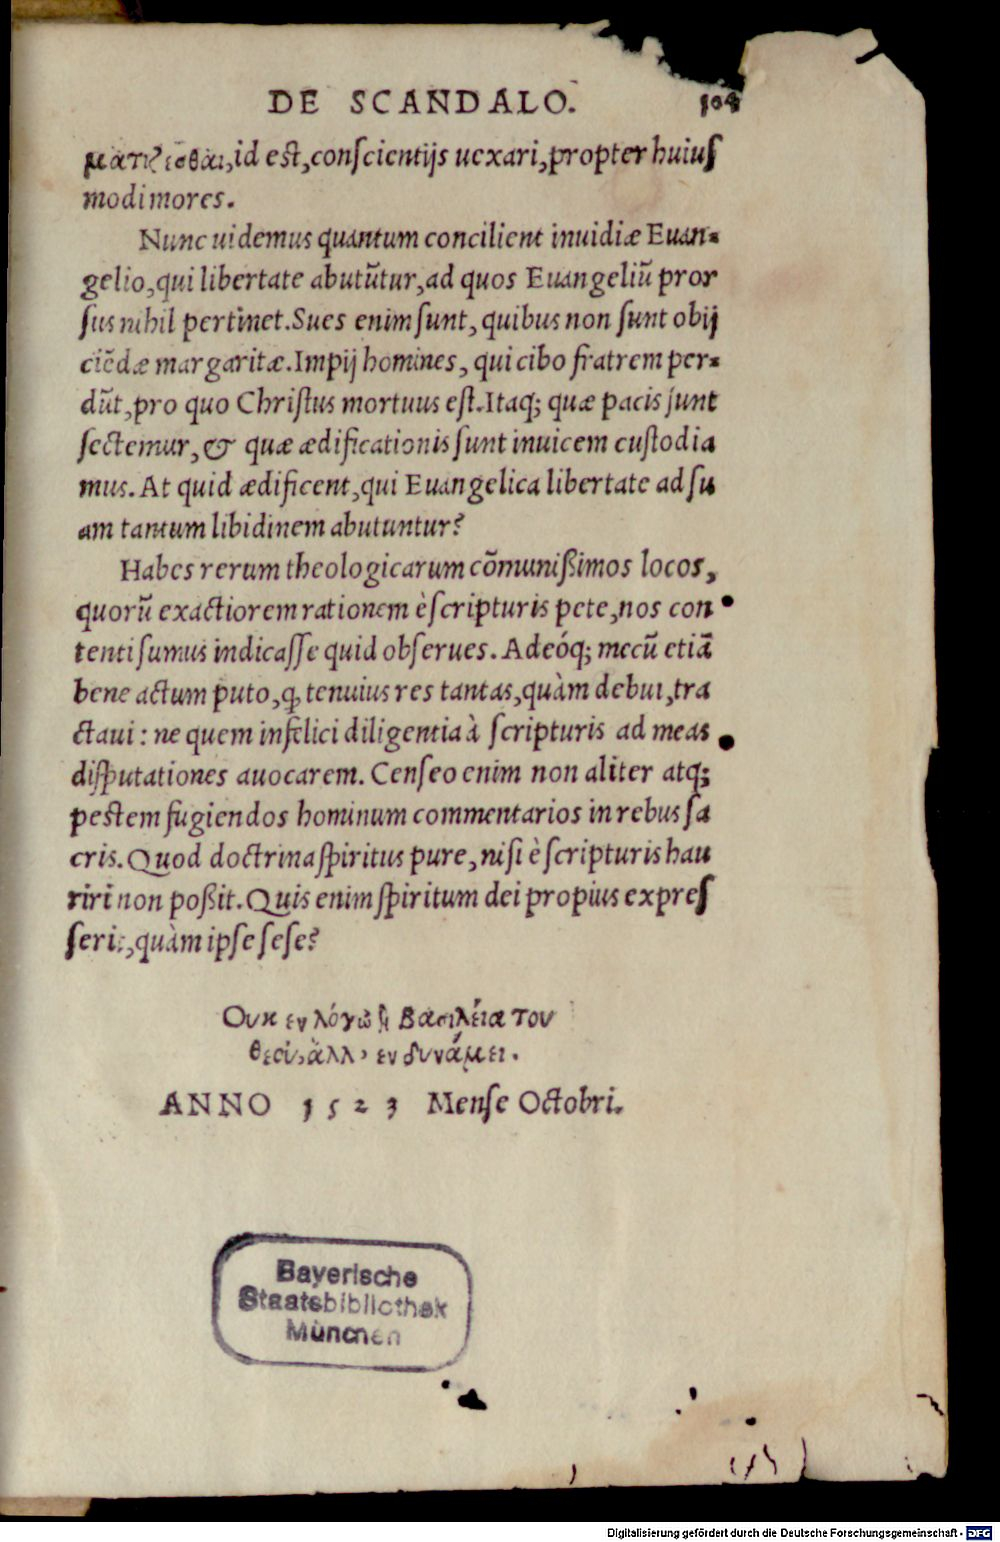 DE SCANDALO. 104
ματίζεσθαι,id est,conscientijs uexari,propter huius
modi mores.
Nunc uidemus quantum concilient inuidiæ Euan-
gelio,qui libertate abutũtur,ad quos Euangeliũ pror
sus nihil pertinet.Sues enim sunt,quibus non sunt obij
ciẽdæ margaritæ.Impij homines, qui cibo fratrem per-
dũt,pro quo Christus mortuus est.Itaq; quæ pacis sunt
sectemur,& quæ ædificationis sunt inuicem custodia
mus. At quid ædificent,qui Euangelica libertate ad su
am tantum libidinem abutuntur?
Habes rerum theologicarum cõmunißimos locos,
quorũ exactiorem rationem è scripturis pete,nos con
tenti sumus indicasse quid obserues. Adeóq; mecũ etiã
bene actum puto,ꝙ tenuius res tantas,quàm debui,tra
ctaui: ne quem infelici diligentia à scripturis ad meas
disputationes auocarem. Censeo enim non aliter atq;
pestem fugiendos hominum commentarios in rebus sa
cris. Quod doctrina spiritus pure, nisi è scripturis hau
riri non poßit. Quis enim spiritum dei propius expres
serit,quàm ipse sese?
Ουκ εν λόγῳ ἡ βασιλεία του
θεοῦ,ἀλλ' εν δυνάμει.
ANNO 1523 Mense Octobri.
Bayerische
Staatsbibliothek
München
Digitalisierung gefördert durch die Deutsche Forschungsgemeinschaft - DFG